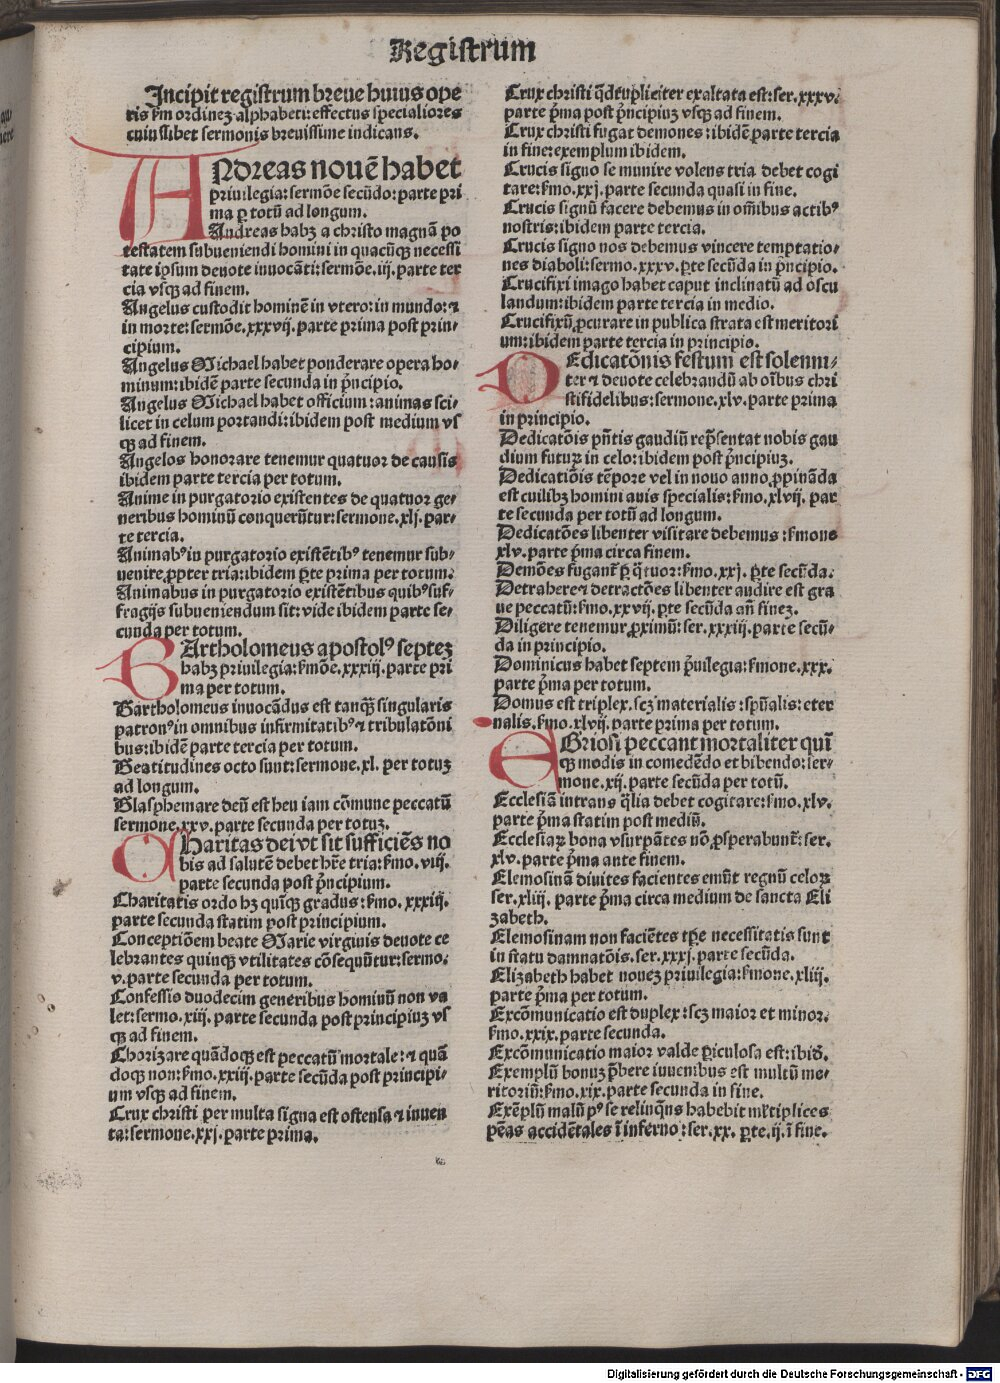 Registrum
Incipit registrum breue huius ope
ris ẜm ordineʒ alphabeti: effectus specialiores
cuiuslibet sermonis breuissime indicans.
ANdreas nouē habet
priuilegia: sermōe secūdo: parte pri
ma ꝑ totū ad longum.
Andreas habꝫ a christo magnā po
testatem subueniendi homini in quacūqꝫ necessi
tate ipsum deuote inuocāti: sermōe. iij. parte ter
cia vsqꝫ ad finem.
Angelus custodit hominē in vtero: in mundo: ⁊
in morte: sermōe. xxxvij. parte prima post prin⸗
cipium.
Angelus Michael habet ponderare opera ho⸗
minum: ibidē parte secunda in p̄ncipio.
Angelus Michael habet officium: animas sci⸗
licet in celum portandi: ibidem post medium vs
qꝫ ad finem.
Angelos honorare tenemur quatuor de causis
ibidem parte tercia per totum.
Anime in purgatorio existentes de quatuor ge⸗
neribus hominū conquerūtur: sermone. xlj. par⸗
te tercia.
Animabꝰ in purgatorio existētibꝰ tenemur sub⸗
uenire ꝓpter tria: ibidem ꝑte prima per totum.
Animabus in purgatorio existētibus quibꝰ suf⸗
fragijs subueniendum sit: vide ibidem parte se⸗
cunda per totum.
BArtholomeus apostolꝰ septeʒ
habꝫ priuilegia: ẜmōe. xxxiij. parte pri
ma per totum.
Bartholomeus inuocādus est tanqꝫ singularis
patronꝰ in omnibus infirmitatibꝰ ⁊ tribulatōni
bus: ibidē parte tercia per totum.
Beatitudines octo sunt: sermone. xl. per totuʒ
ad longum.
Blasphemare deū est heu iam cōmune peccatū
sermone. xxv. parte secunda per totuʒ.
CHaritas dei vt sit sufficiēs no
bis ad salutē debet hr̄e tria: ẜmo. viij.
parte secunda post p̄ncipium.
Charitatis ordo hꝫ quīqꝫ gradus: ẜmo. xxxiij.
parte secunda statim post principium.
Conceptiōem beate Marie virginis deuote ce
lebrantes quinqꝫ vtilitates cōsequūtur: sermo.
v. parte secunda per totum.
Confessio duodecim generibus hominū non va
let: sermo. xiij. parte secunda post principiuʒ vs
qꝫ ad finem.
Chorizare quādoqꝫ est peccatū mortale: ⁊ quā
doqꝫ non: ẜmo. xxiij. parte secūda post principi⸗
um vsqꝫ ad finem.
Crux christi per multa signa est ostensa ⁊ inuen
ta: sermone. xxj. parte prima.
Crux christi q̄drupliciter exaltata est: ser. xxxv.
parte prima post p̄ncipium vsqꝫ ad finem.
Crux christi fugat demones: ibidē parte tercia
in fine: exemplum ibidem.
Crucis signo se munire volens tria debet cogi
tare: ẜmo. xxj. parte secunda quasi in fine.
Crucis signū facere debemus in om̄ibus actibꝰ
nostris: ibidem parte tercia.
Crucis signo nos debemus vincere temptatio⸗
nes diaboli: sermo. xxxv. ꝑte secūda in p̄ncipio.
Crucifixi imago habet caput inclinatū ad oscu
landum: ibidem parte tercia in medio.
Crucifixū ꝓcurare in publica strata est meritori
um: ibidem parte tercia in principio.
DEdicatōnis festum est solenni⸗
ter ⁊ deuote celebrandū ab oībus chri
stifidelibus: sermone. xlv. parte prima
in principio.
Dedicatōis pn̄tis gaudiū rep̄sentat nobis gau
dium futurꝫ in celo: ibidem post p̄ncipiuʒ.
Dedicatiōis tēpore vel in nouo anno ꝓpināda
est cuilibꝫ homini auis specialis: ẜmo. xlvij. par
te secunda per totū ad longum.
Dedicatōes libenter visitare debemus: ẜmone
xlv. parte p̄ma circa finem.
Demōes fugant̄ ꝑ q̄tuor: ẜmo. xxj. ꝑte secūda.
Detrahere ⁊ detractōes libenter audire est gra
ue peccatū: ẜmo. xxvij. ꝑte secūda an̄ fineʒ.
Diligere tenemur ꝓximū: ser. xxxiij. parte secū⸗
da in principio.
Dominicus habet septem p̄uilegia: ẜmone. xxx.
parte p̄ma per totum.
Domus est triplex. scꝫ materialis: sp̄ualis: eter
nalis. ẜmo. xlvij. parte prima per totum.
EBriosi peccant mortaliter quīqꝫ
modis in comedēdo et bibendo: ser⸗
mone. xij. parte secūda per totū.
Ecclesiā intrans q̄lia debet cogitare: ẜmo. xlv.
parte p̄ma statim post mediū.
Ecclesiaꝝ bona vsurpātes nō ꝓsperabunt̄: ser.
xlv. parte p̄ma ante finem.
Elemosinā diuites facientes emūt regnū celoꝝ
ser. xliij. parte p̄ma circa medium de sancta Eli
zabeth.
Elemosinam non faciētes tp̄e necessitatis sunt
in statu damnatōis. ser. xxxj. parte secūda.
Elizabeth habet noueʒ priuilegia: ẜmone. xliij.
parte p̄ma per totum.
Excōmunicatio est duplex: scꝫ maior et minor.
ẜmo. xxix. parte secunda.
Excōmunicatio maior valde ꝑiculosa est: ibid̄.
Exemplū bonuʒ p̄bere iuuenibus est multū me⸗
ritoriū: ẜmo. xix. parte secunda in fine.
Exēplū malū pꝰ se relinq̄ns habebit ml̄tiplices
pēas accidētales ī inferno: ser. xx. ꝑte. ij. ī fine.
Digitalisierung gefördert durch die Deutsche Forschungsgemeinschaft - DFG